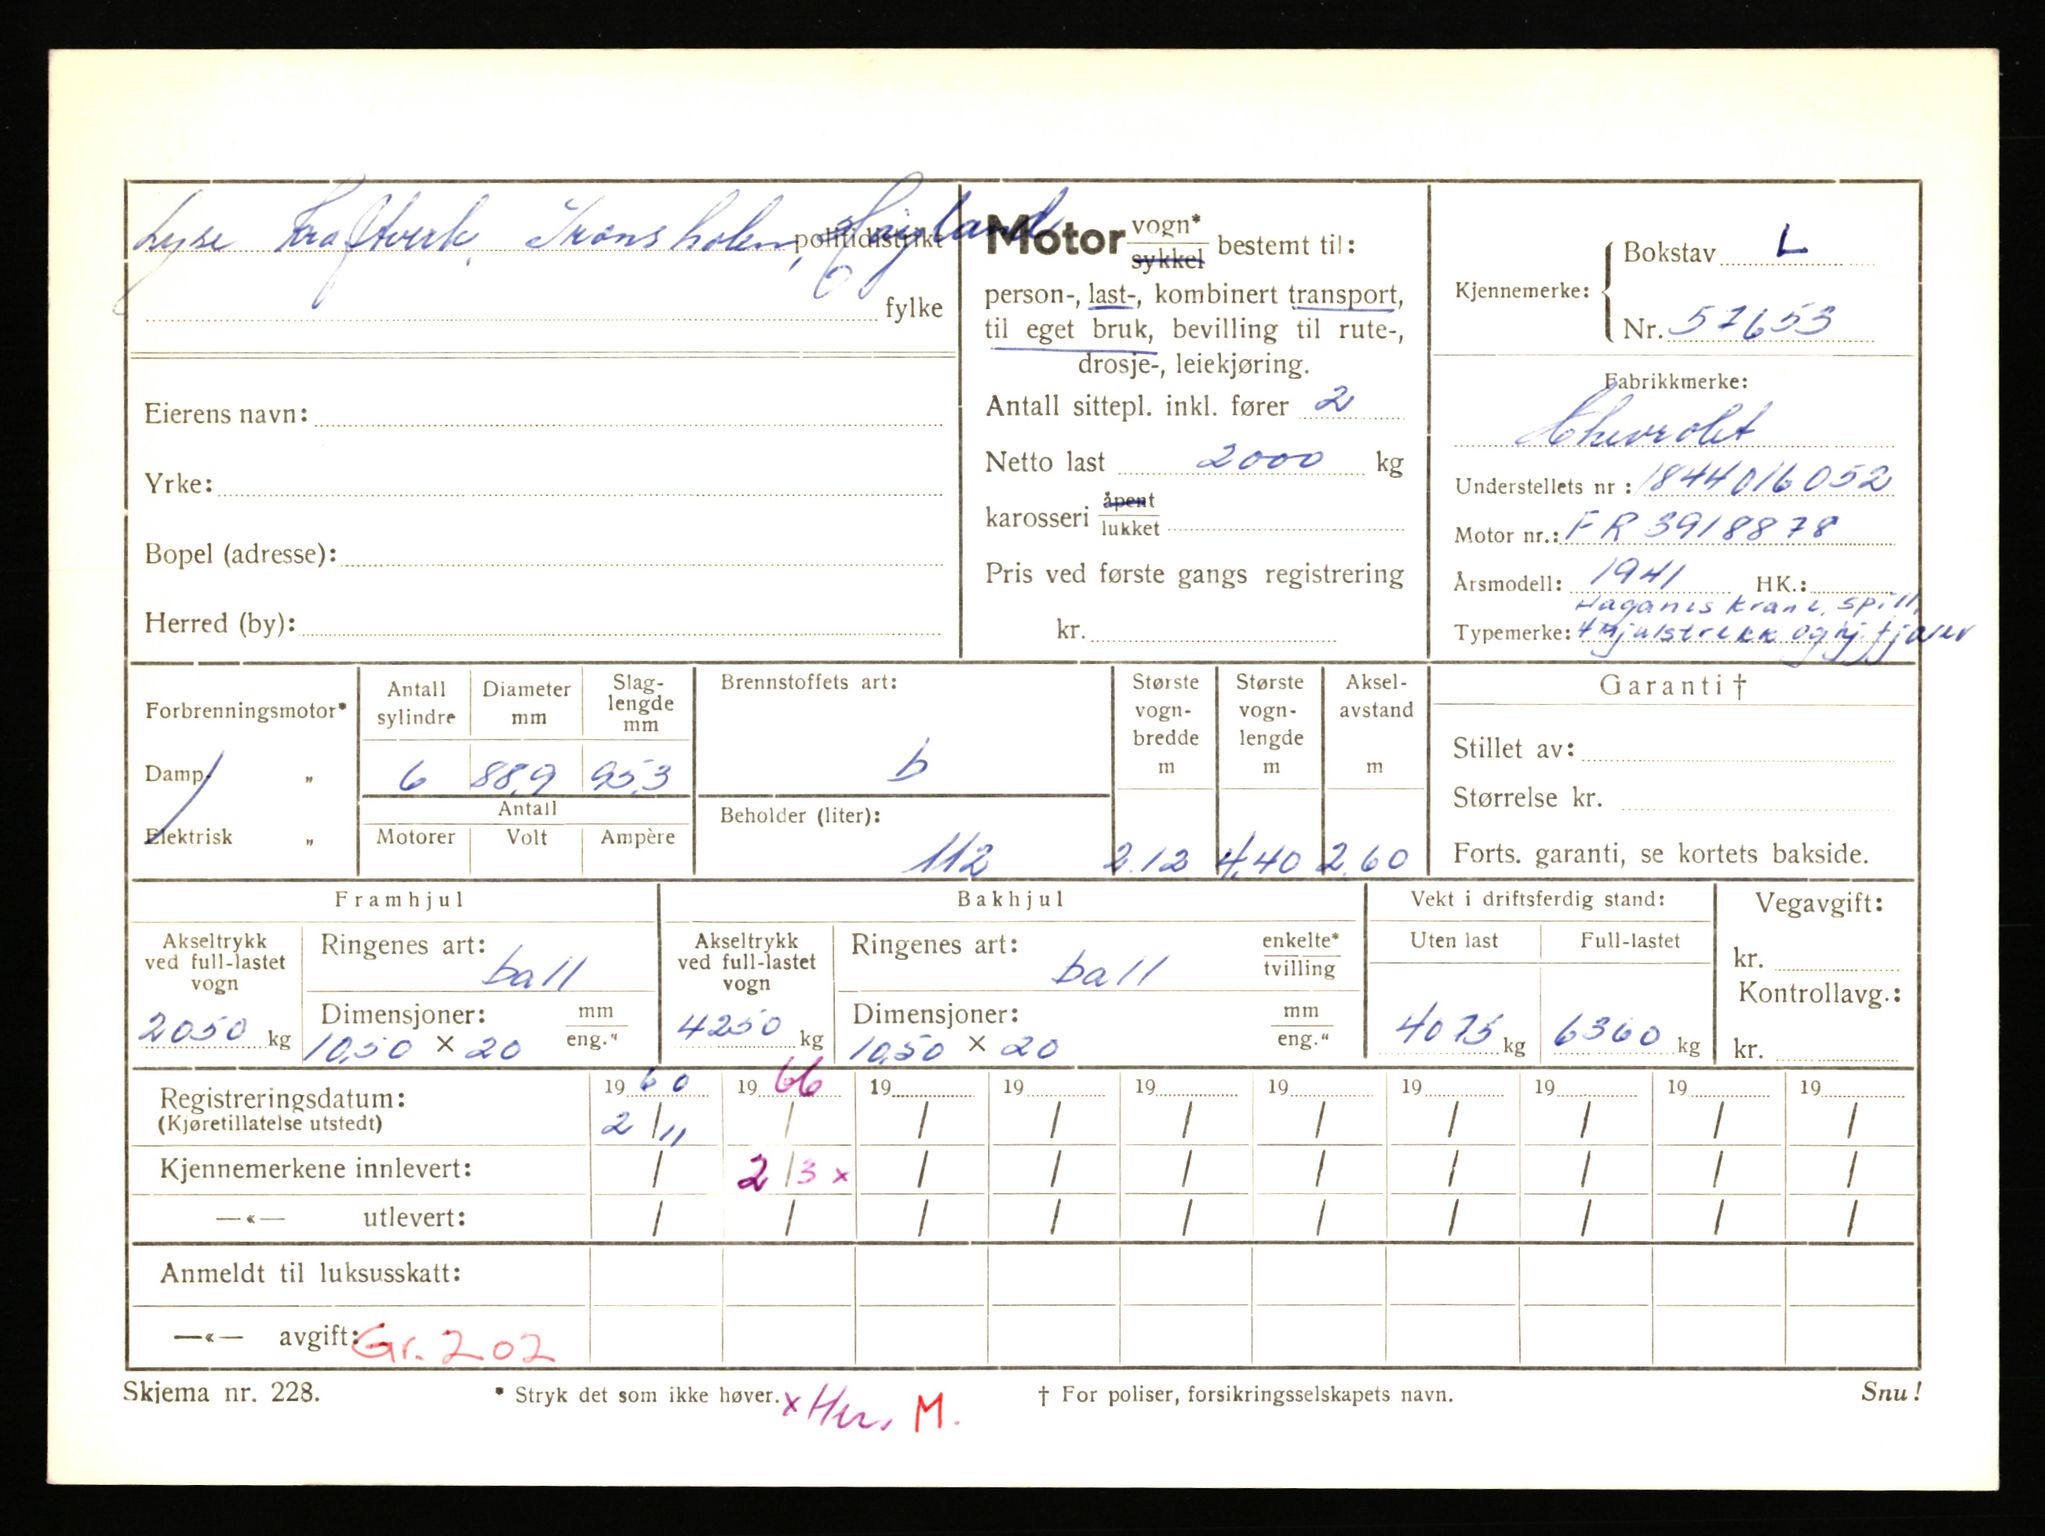 Lyse Kraftverk, Tronsholen, Høyland
politidistrikt
fylke
Eierens navn:
Yrke:
Bopel (adresse):
Herred (by):
Motor vogn* sykkel bestemt til:
person-, last-, kombinert transport,
til eget bruk, bevilling til rute-,
drosje-, leiekjøring.
Antall sittepl. inkl. fører 2
Netto last 2000 kg
karosseri åpent lukket
Pris ved første gangs registrering
kr.
Kjennemerke: Bokstav L
Nr. 57653
Fabrikkmerke:
Chevrolet
Understellets nr : 1844016052
Motor nr.: FR 3918878
Årsmodell: 1941 HK.:
krane, spill,
Typemerke: 4 hjulstrekk og
Forbrenningsmotor*
Damp- „
Elektrisk „
Antall sylindre 6
Diameter mm 88,9
Slag-lengde mm 95,3
Antall
Motorer Volt Ampère
Brennstoffets art:
b
Beholder (liter):
112
Største vogn-bredde m 2.12
Største vogn-lengde m 4,40
Aksel-avstand m 2.60
Garanti †
Stillet av:
Størrelse kr.
Forts. garanti, se kortets bakside.
Framhjul
Akseltrykk ved full-lastet vogn
2050 kg
Ringenes art:
ball
Dimensjoner: mm eng."
10,50 × 20
Bakhjul
Akseltrykk ved full-lastet vogn
4250 kg
Ringenes art: enkelte* tvilling
ball
Dimensjoner: mm eng."
10,50 × 20
Vekt i driftsferdig stand:
Uten last Full-lastet
4075 kg 6360 kg
Vegavgift:
kr.
Kontrollavg.:
kr.
Registreringsdatum: 19 60 19 66 19 19 19 19 19 19 19 19
(Kjøretillatelse utstedt) 2/11 / / / / / / / / /
Kjennemerkene innlevert: / 2/3 x / / / / / / / /
—«— utlevert: / / / / / / / / / /
Anmeldt til luksusskatt:
—«— avgift: Gr. 202
Skjema nr. 228. * Stryk det som ikke høver. † For poliser, forsikringsselskapets navn. Snu!
M.